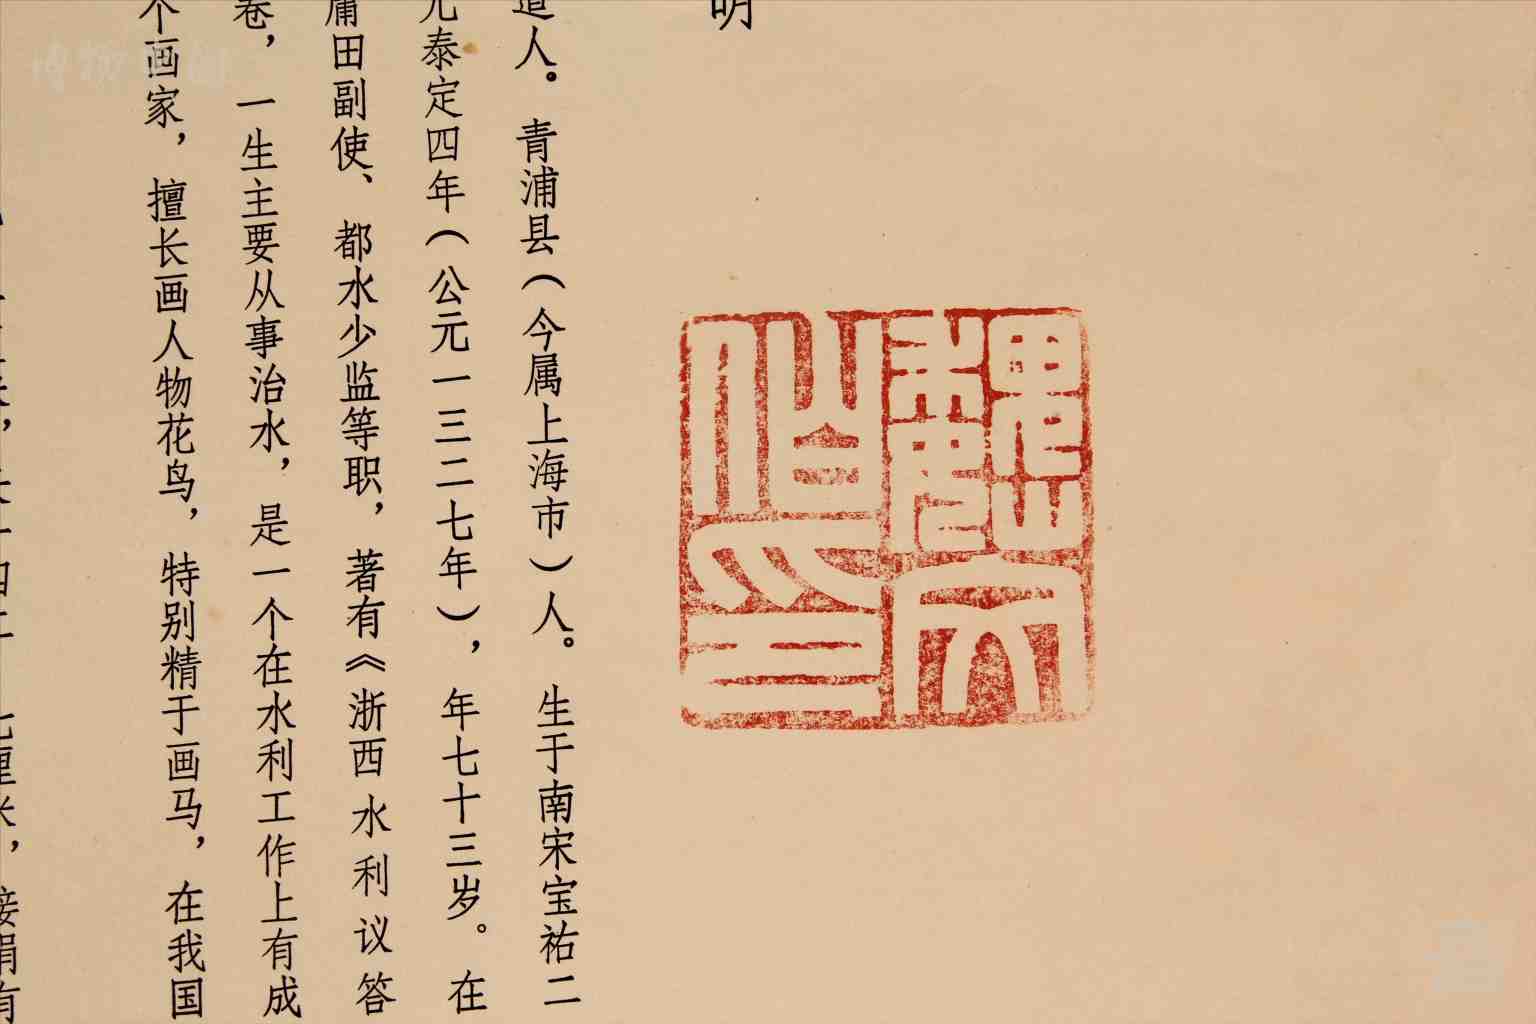 明
道人。青浦县（今属上海市）人。生于南宋宝祐二
元泰定四年（公元一三二七年），年七十三岁。在
庸田副使、都水少监等职，著有《浙西水利议答
卷，一生主要从事治水，是一个在水利工作上有成
个画家，擅长画人物花鸟，特别精于画马，在我国